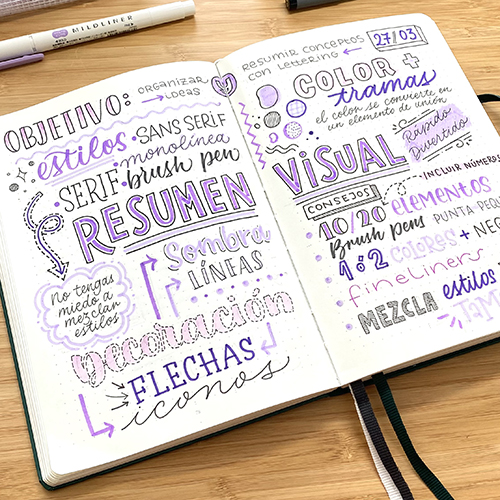 MILDLINER
OBJETIVO:
→ ORGANIZAR
IDEAS
estilos
SANS SERIF
monolínea
SERIF
brush pen
RESUMEN
Sombra
LÍNEAS
No tengas
miedo a
mezclar
estilos
Decoración
FLECHAS
iconos
RESUMIR CONCEPTOS
CON LETTERING
27/03
COLOR +
tramas
el color se convierte en
un elemento de unión
Rápido
Divertido
VISUAL
CONSEJOS
INCLUIR NÚMEROS
10/20 elementos
Brush pens PUNTA
1 ó 2 colores +
fineliners
MEZCLA estilos